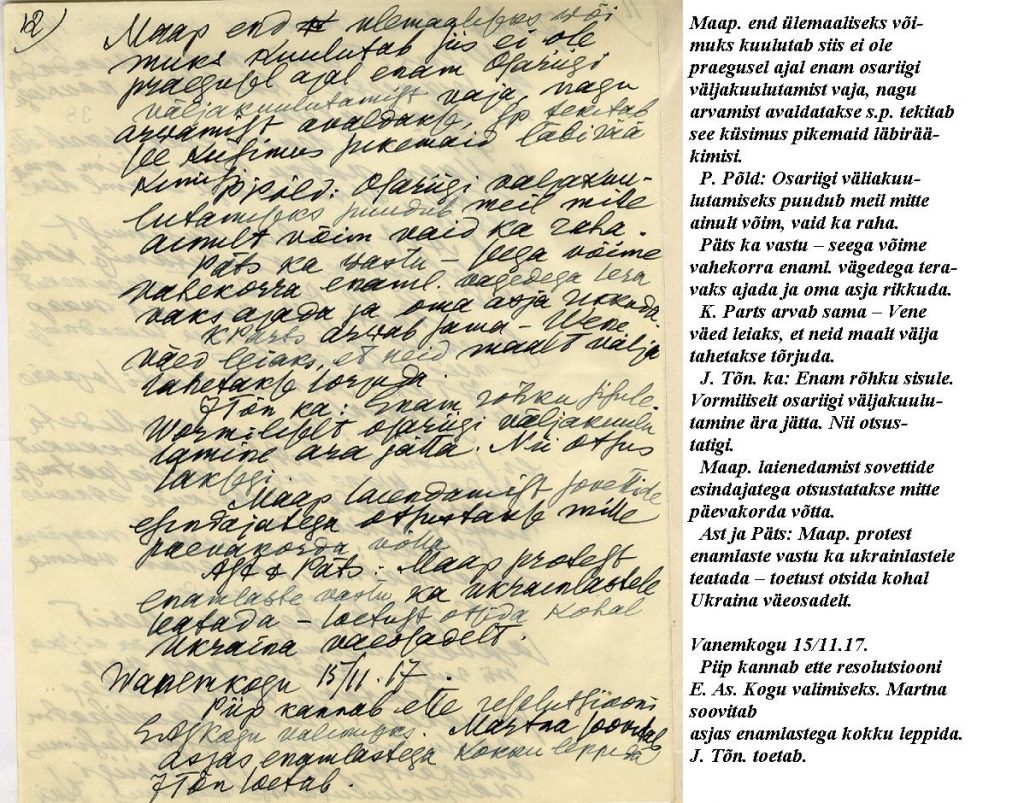 12)
Maap end ülemaaliseks või
muks kuulutab siis ei ole
praegusel ajal enam Osariigi
väljakuulutamist vaja, nagu
arvamist avaldakse. Sp tekitab
see küsimus pikemaid läbirää
kimisi.
P. põld: Osariigi väljakuu-
lutamiseks puudub meil mitte
ainult võim vaid ka raha.
Päts ka vastu – seega võime
vahekorra enaml. vägedega tera
vaks ajada ja oma asja rikkuda.
K Parts arvab sama – Wene
väed leiaks, et neid maalt välja
tahetakse tõrjuda.
J Tõn ka: Enam rõhku sisule.
Wormiliselt osariigi väljakuulu
tamine ära jätta. Nii otsus
takse
Maap laiendamist sovettide
esindajatega otsustakse mitte
päevakorda võtta
Ast & Päts: Maap protest
enamlaste vastu ka ukrainlastele
teatada – toetust otsida kohal
Ukraina väeosadelt.
Wanemkogu 15/11.17.
Piip kannab ette resolutsiooni
E As kogu valimiseks. Martna soovitab
asjas enamlastega kokku leppida
J Tõn toetab.
Maap. end ülemaaliseks või-
muks kuulutab siis ei ole
praegusel ajal enam osariigi
väljakuulutamist vaja, nagu
arvamist avaldatakse s.p. tekitab
see küsimus pikemaid läbirää-
kimisi.
P. Põld: Osariigi väliakuu-
lutamiseks puudub meil mitte
ainult võim, vaid ka raha.
Päts ka vastu – seega võime
vahekorra enaml. vägedega tera-
vaks ajada ja oma asja rikkuda.
K. Parts arvab sama – Vene
väed leiaks, et neid maalt välja
tahetakse tõrjuda.
J. Tõn. ka: Enam rõhku sisule.
Vormiliselt osariigi väljakuulu-
tamine ära jätta. Nii otsus-
tatigi.
Maap. laienedamist sovettide
esindajatega otsustatakse mitte
päevakorda võtta.
Ast ja Päts: Maap. protest
enamlaste vastu ka ukrainlastele
teatada – toetust otsida kohal
Ukraina väeosadelt.
Vanemkogu 15/11.17.
Piip kannab ette resolutsiooni
E. As. Kogu valimiseks. Martna
soovitab
asjas enamlastega kokku leppida.
J. Tõn. toetab.